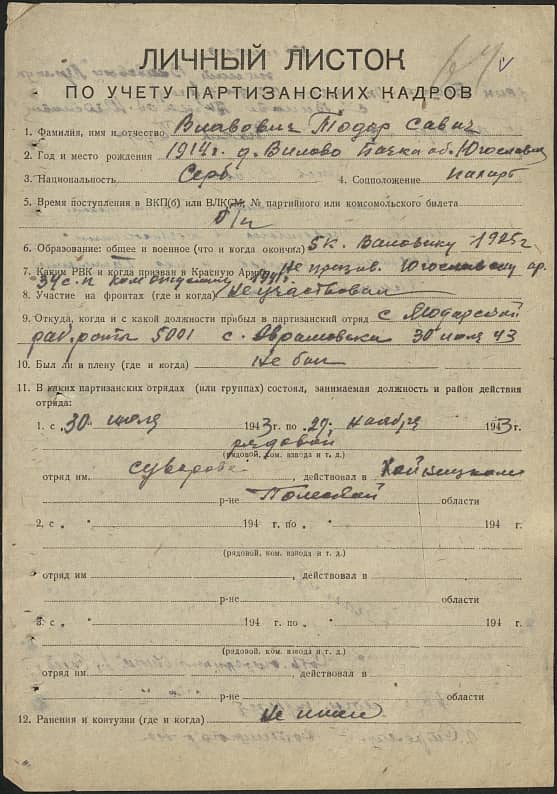 ЛИЧНЫЙ ЛИСТОК
ПО УЧЕТУ ПАРТИЗАНСКИХ КАДРОВ
1. Фамилия, имя и отчество Влавович Тодар Савич
2. Год и место рождения 1914 г. д. Вилово Бачка об. Югославия
3. Национальность Серб 4. Соцположение
5. Время поступления в ВКП(б) или ВЛКСМ, № партийного или комсомольского билета
б/п
6. Образование: общее и военное (что и когда окончил) 5 к. 1925 г
7. Каким РВК и когда призван в Красную Армию Не призыв. Югославскую ар.
34 с. п. 1941 г.
8. Участие на фронтах (где и когда) Не участвовал
9. Откуда, когда и с какой должности прибыл в партизанский отряд с Мадарской
раб. роты 5001 с. Аврамовка 30 июля 43
10. Был ли в плену (где и когда) Не был
11. В каких партизанских отрядах (или группах) состоял, занимаемая должность и район действия
отряда:
1. с „30" июля 1943 г. по „29" ноября 1943 г.
рядовой
(рядовой, ком. взвода и т. д.)
отряд им. Суворова, действовал в Хойницком
р-не Полесской области
2. с „ " 194 г. по „ " 194 г.
(рядовой, ком. взвода и т. д.)
отряд им , действовал в
р-не области
3. с „ " 194 г. по „ " 194 г.
(рядовой, ком. взвода и т. д.)
отряд им. , действовал в
р-не области
12. Ранения и контузии (где и когда) Не имел